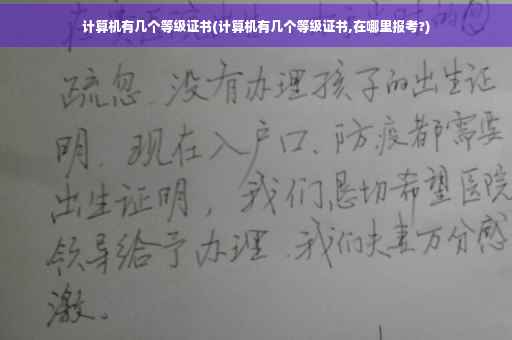 计算机有几个等级证书(计算机有几个等级证书,在哪里报考?)
疏忽、没有办理孩子的出生证
明、现在入户口、防疫都需要
出生证明，我们恳切希望医院
领导给予办理、我们夫妻万分感
激。